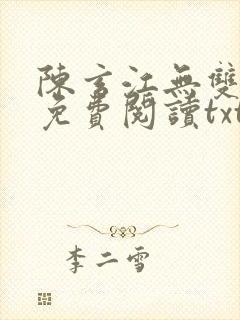 陳玄江無雙
免費閱讀txt
李二雪